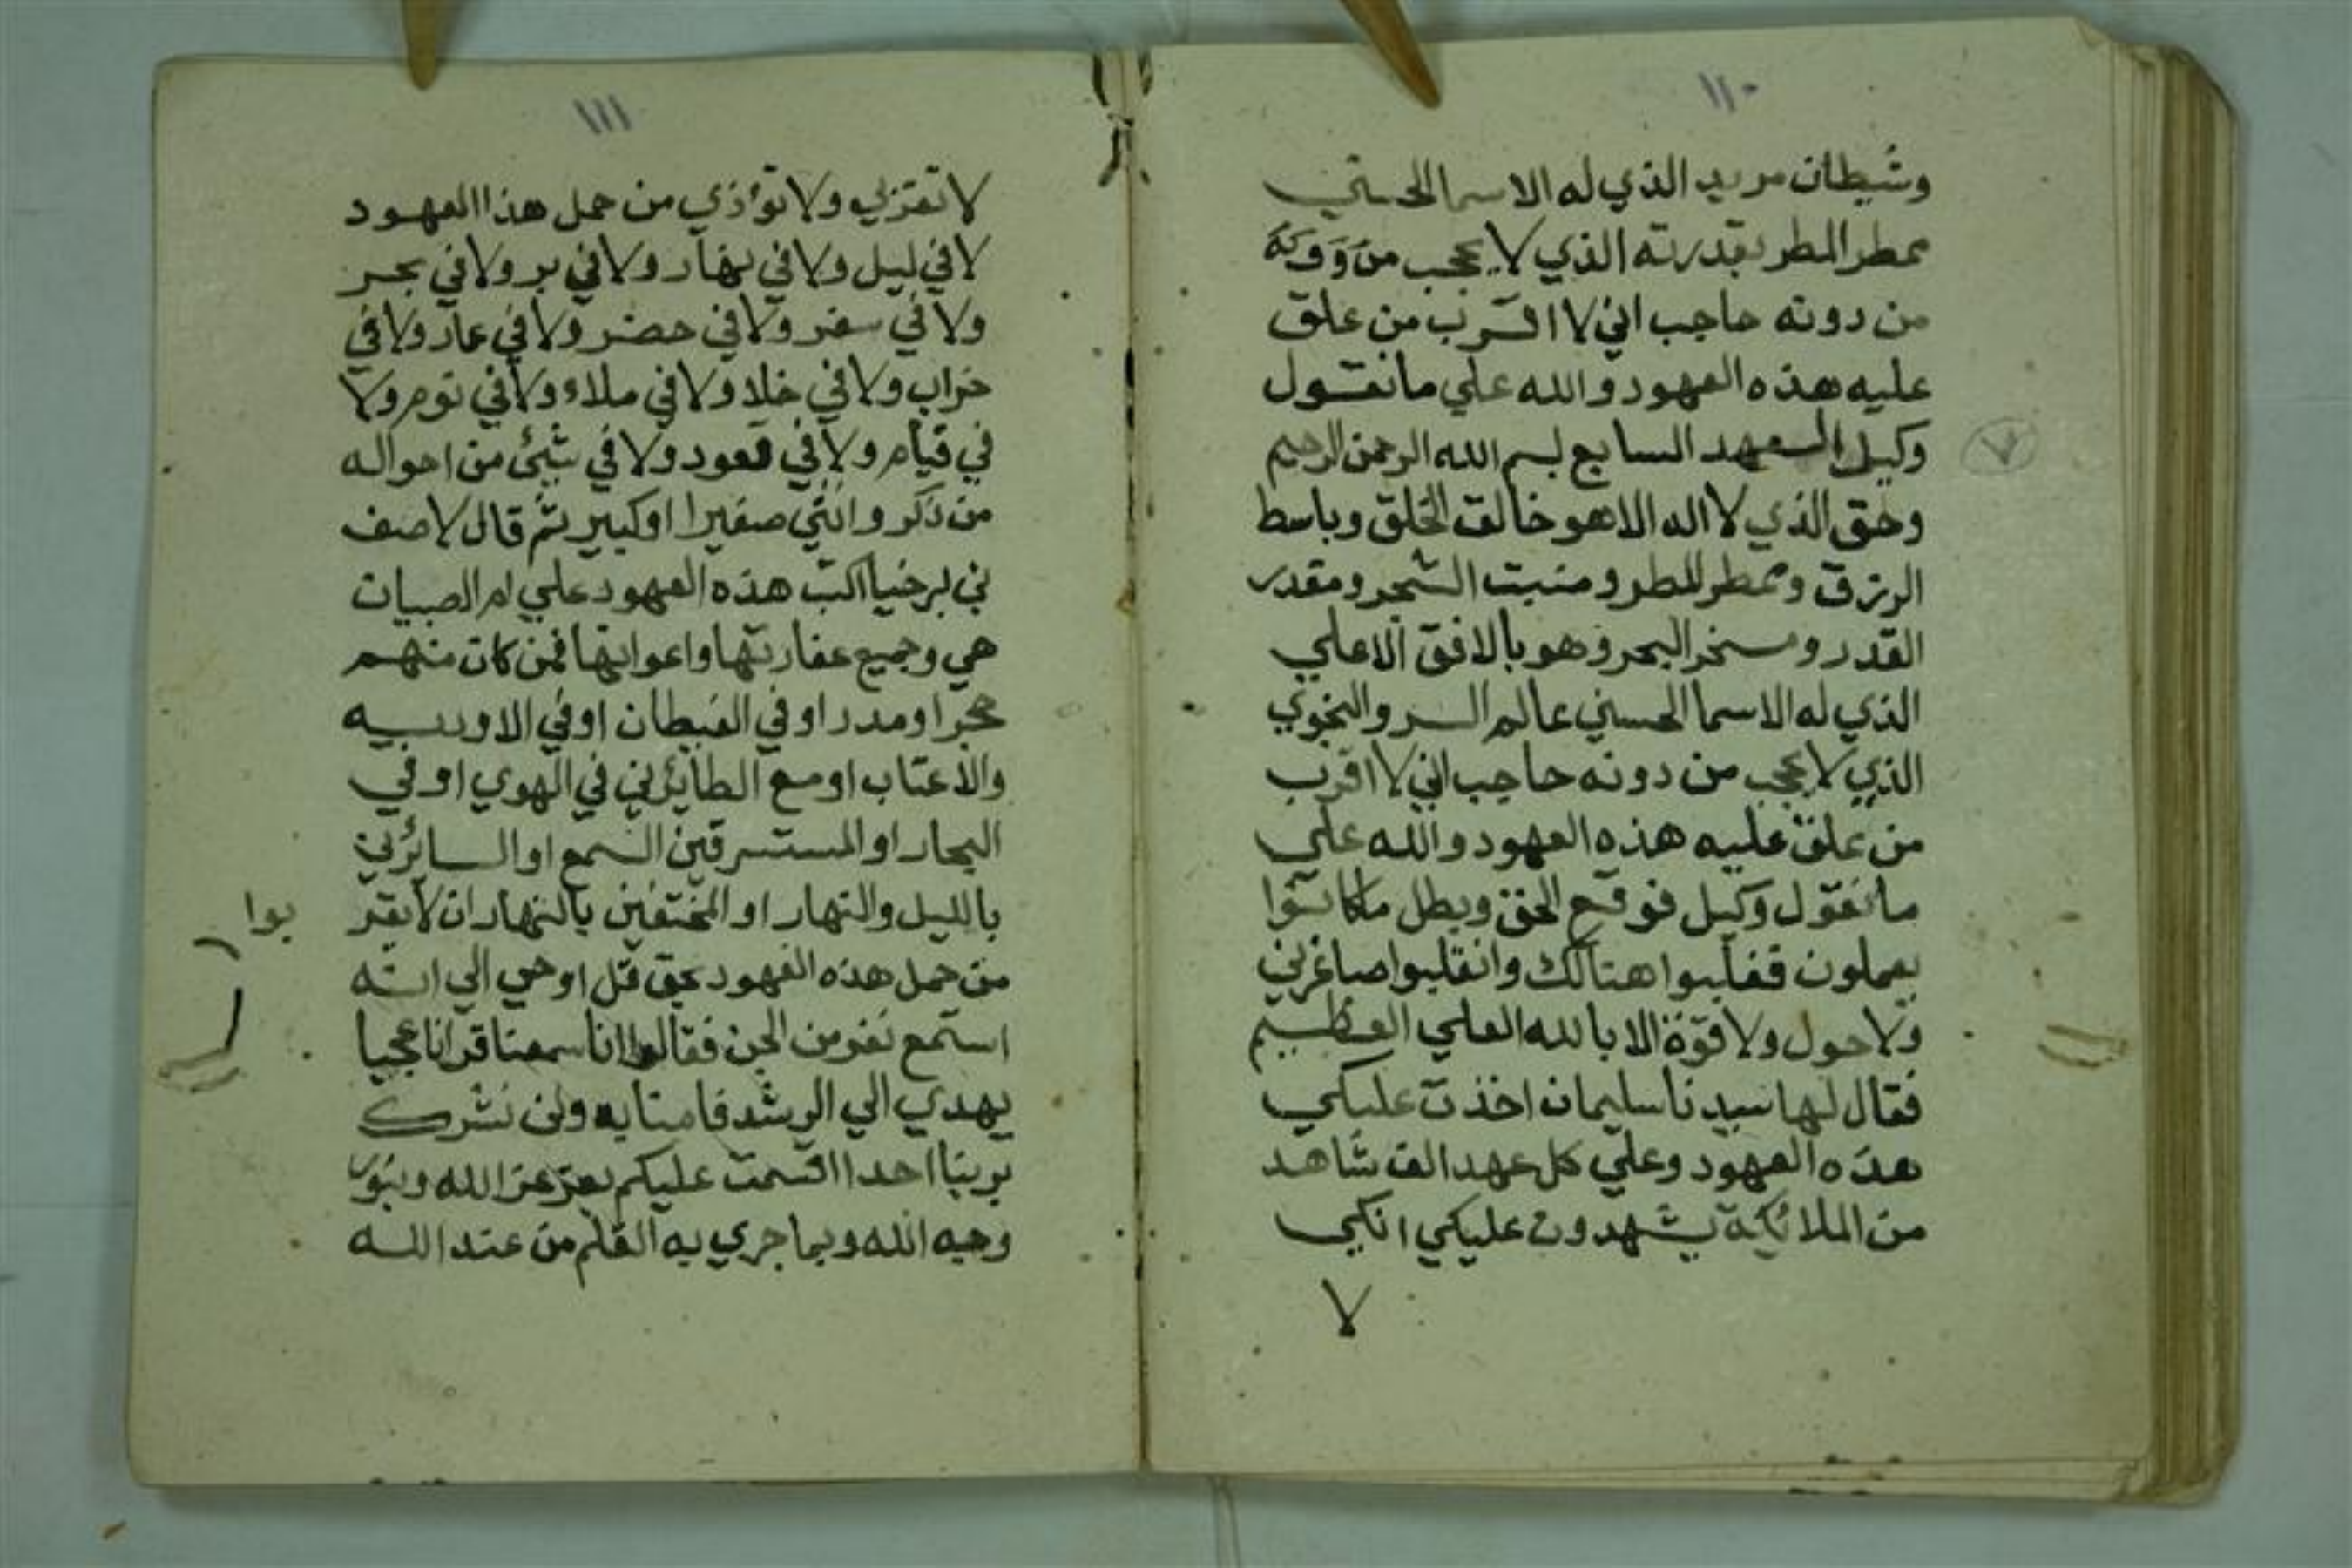 ١١٠
وشيطان مريد الذي له الاسما الحسني
ممطر المطر بقدرته الذي لا يحجب من
من دونه حاجب اني لا اقرب من علق
عليه هذه العهود والله علي مانقول
وكيل العهد السابع بسم الله الرحمن الرحيم
٧
وحق الذي لا اله الا هو خالق الخلق وباسط
الرزق وممطر المطر ومنبت الشجر ومقدر
القدر ومسخر البحر وهو بالافق الاعلي
الذي له الاسما الحسني عالم السر والنجوي
الذي لا يحجب من دونه حاجب اني لا اقرب
من علق عليه هذه العهود والله علي
مانقول وكيل فوقع الحق وبطل ماكانوا
يعملون فغلبوا هنالك وانقلبوا صاغرين
ولا حول ولا قوة الا بالله العلي العظيم
فقال لها سيدنا سليمان اخذت عليكي
هذه العهود وعلي كل عهد الف شاهد
من الملائكة يشهدون عليكي انكي
لا
١١١
لا تقربي ولا تؤذي من حمل هذا العهود
لا في ليل ولا في نهار ولا في بر ولا في بحر
ولا في سفر ولا في حضر ولا في عمار ولا في
خراب ولا في خلا ولا في ملاء ولا في نوم ولا
في قيام ولا في قعود ولا في شيئ من احواله
من ذكر وانثي صغيرا اوكبير ثم قال لاصف
بن برخيا اكتب هذه العهود علي ام الصبيان
هي وجميع عفاريتها واعوانها فمن كان منهم
حجرا ومدر او في الغيطان او في الاوديه
والاعتاب او مع الطايرين في الهوي او في
البحار او المسترقين السمع او السائرين
بالليل والنهار او المختفين بالنهار ان لا يقر
بوا
من حمل هذه العهود بحق قل اوحي الي انه
استمع نفر من الجن فقالوا انا سمعنا قرانا عجبا
يهدي الي الرشد فامنا به ولن نشرك
بربنا احدا اقسمت عليكم بعز عز الله وبنور
وجه الله وبما جري به القلم من عند الله